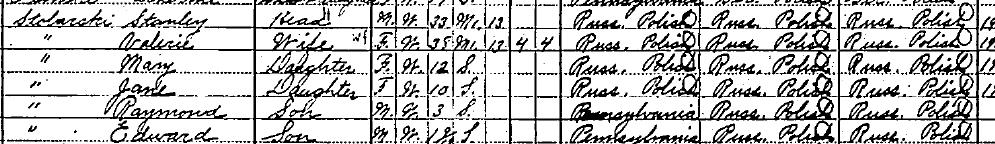 Stolarski Stanley Head M. W. 33 M1. 13 Russ. Polish Russ. Polish Russ. Polish
" Valerie Wife F. W. 35 M1. 13 4 4 Russ. Polish Russ. Polish Russ. Polish
" Mary Daughter F. W. 12 S. Russ. Polish Russ. Polish Russ. Polish
" Jane Daughter F W. 10 S. Russ. Polish Russ. Polish Russ. Polish
" Raymond Son M. W. 3 S. Pennsylvania Russ. Polish Russ. Polish
" Edward Son M. W. S. Pennsylvania Russ. Polish Russ. Polish